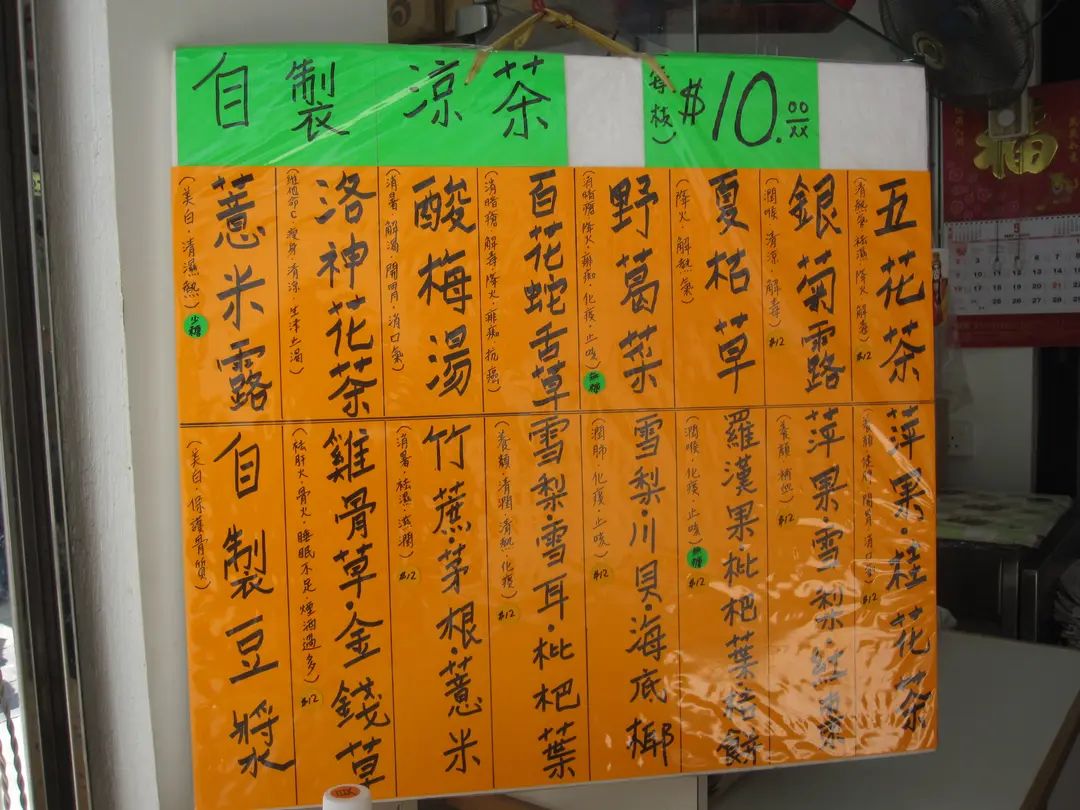 自製涼茶
每枝) $10.00/xx
五花茶
(清熱氣 祛濕 降火 解毒) $12
銀菊露
(潤喉 清涼 解毒) $12
夏枯草
(降火·解熱氣)
野葛菜
(消暗瘡 降火 化痰·止咳) 無糖
百花蛇舌草
(消暗瘡 解毒·降火 抗癌)
酸梅湯
(消暑·解渴·開胃·消口氣)
洛神花茶
(維他命C·瘦身·清涼·生津止渴)
薏米露
(美白·清濕熱) 少糖
萍果·桂花茶
(養顏 開胃 消口氣) $12
萍果·雪梨·紅棗
(養顏·補血) $12
羅漢果·枇杷葉桔餅
(潤喉·化痰·止咳) 無糖 $12
雪梨·川貝·海底椰
(潤肺·化痰·止咳) $12
雪梨·雪耳·枇杷葉
(養顏·清潤·清熱·化痰) $12
竹蔗·茅根·薏米
(消暑·祛濕·滋潤) $12
雞骨草·金錢草
(祛肝火·骨火·睡眠不足 煙酒過多) $12
自製豆漿
(美白·保護骨質)
福